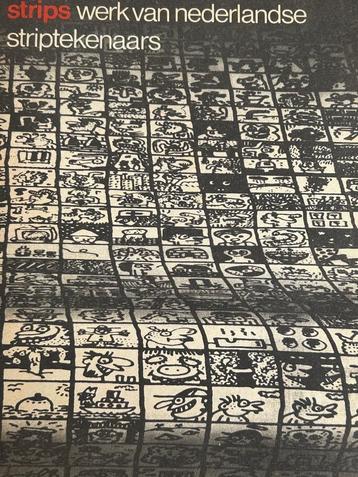 strips werk van nederlandse
striptekenaars